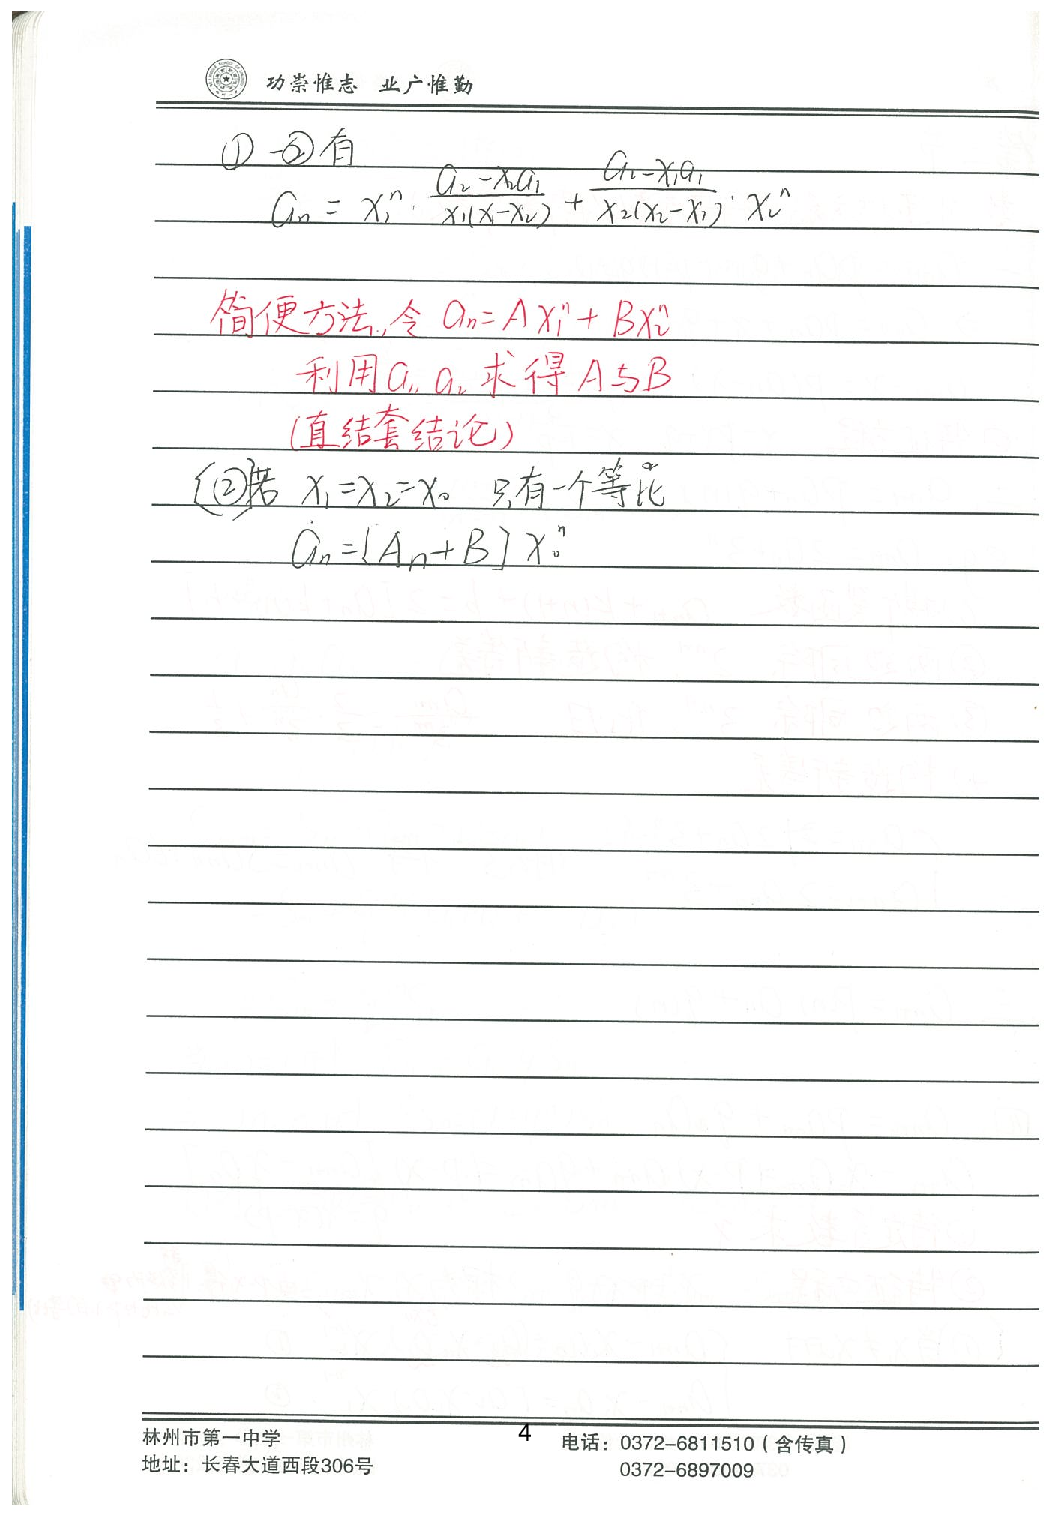 功崇惟志 业广惟勤
① -②有
aₙ = x₁ⁿ · (a₂-x₂a₁)/(x₁(x-x₂)) + (a₂-x₁a₁)/(x₂(x₂-x₁)) · x₂ⁿ
简便方法,令 aₙ=Ax₁ⁿ+Bx₂ⁿ
利用a₁, a₂ 求得A与B
(直结套结论)
(②)若 x₁=x₂=x₀ 只有一个等比
aₙ=[An+B]x₀ⁿ
林州市第一中学 4 电话：0372-6811510（含传真）
地址：长春大道西段306号 0372-6897009